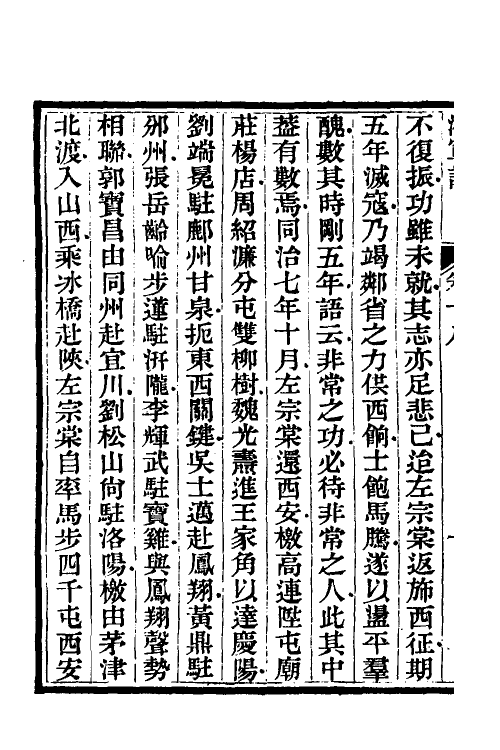 不復振功雖未就其志亦足悲已迨左宗棠返旆西征期
五年滅寇乃竭鄰省之力供西餉士飽馬騰遂以盪平羣
醜數其時剛五年語云非常之功必待非常之人此其中
葢有數焉同治七年十月左宗棠還西安檄高連陞屯廟
莊楊店周紹濂分屯雙柳樹魏光燾進王家角以達慶陽
劉端冕駐鄜州甘泉扼東西關鍵吳士邁赴鳳翔黃鼎駐
邠州張岳齡喻步蓮駐汧隴李輝武駐寶雞與鳳翔聲勢
相聯郭寶昌由同州赴宜川劉松山尙駐洛陽檄由茅津
北渡入山西乘冰橋赴陝左宗棠自率馬步四千屯西安